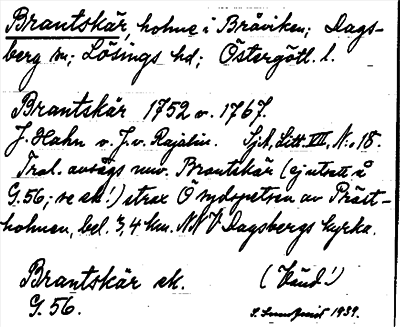 Brantskär, holme i Bråviken; Dags-
berg sn; Lösings hd; Östergötl. l.
Brantskär 1752 o. 1767.
J. Hahn o. J. v. Rajalin. Sjk, Litt. VII, N:o 18.
Trol. avsågs nuv. Brantskär (ej utsatt å
G. 56; se ek!) strax Ö sydspetsen av Präst-
holmen, bel. 3,4 km. NNV Dagsbergs kyrka.
Brantskär ek. (Vänd!)
G. 56. 1939.